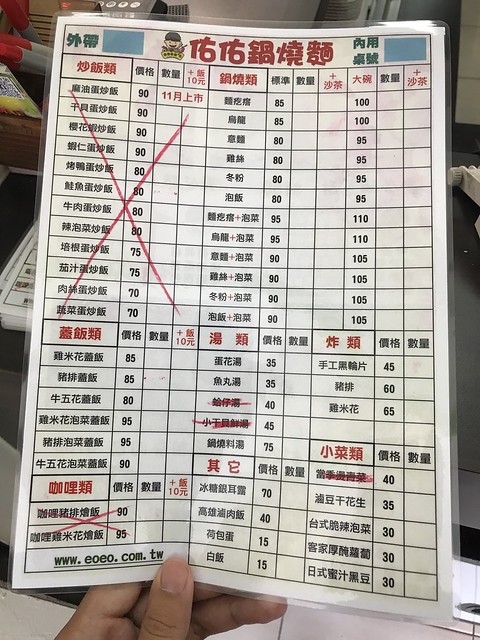 外帶 佑佑鍋燒麵 內用桌號
炒飯類 價格 數量 +飯10元
麻油蛋炒飯 90 11月上市
干貝蛋炒飯 90
櫻花蝦炒飯 90
蝦仁蛋炒飯 90
烤鴨蛋炒飯 80
鮭魚蛋炒飯 80
牛肉蛋炒飯 80
辣泡菜炒飯 80
培根蛋炒飯 75
茄汁蛋炒飯 75
肉絲蛋炒飯 70
蔬菜蛋炒飯 70
鍋燒類 標準 數量 +沙茶 大碗 數量 +沙茶
麵疙瘩 85 100
烏龍 85 100
意麵 80 95
雞絲 80 95
冬粉 80 95
泡飯 80 95
麵疙瘩+泡菜 95 110
烏龍+泡菜 95 110
意麵+泡菜 90 105
雞絲+泡菜 90 105
冬粉+泡菜 90 105
泡飯+泡菜 90 105
蓋飯類 價格 數量 +飯10元
雞米花蓋飯 85
豬排蓋飯 85
牛五花蓋飯 80
雞米花泡菜蓋飯 95
豬排泡菜蓋飯 95
牛五花泡菜蓋飯 90
咖哩類 價格 數量 +飯10元
咖哩豬排燴飯 90
咖哩雞米花燴飯 95
www.eoeo.com.tw
湯類 價格 數量
蛋花湯 35
魚丸湯 35
蛤仔湯 40
小干貝鮮湯 45
鍋燒料湯 75
其它 價格 數量
冰糖銀耳露 70
高雄滷肉飯 40
荷包蛋 15
白飯 15
炸類 價格 數量
手工黑輪片 45
豬排 60
雞米花 65
小菜類 價格 數量
當季燙青菜 40
滷豆干花生 35
台式脆辣泡菜 30
客家厚醃蘿蔔 30
日式蜜汁黑豆 30